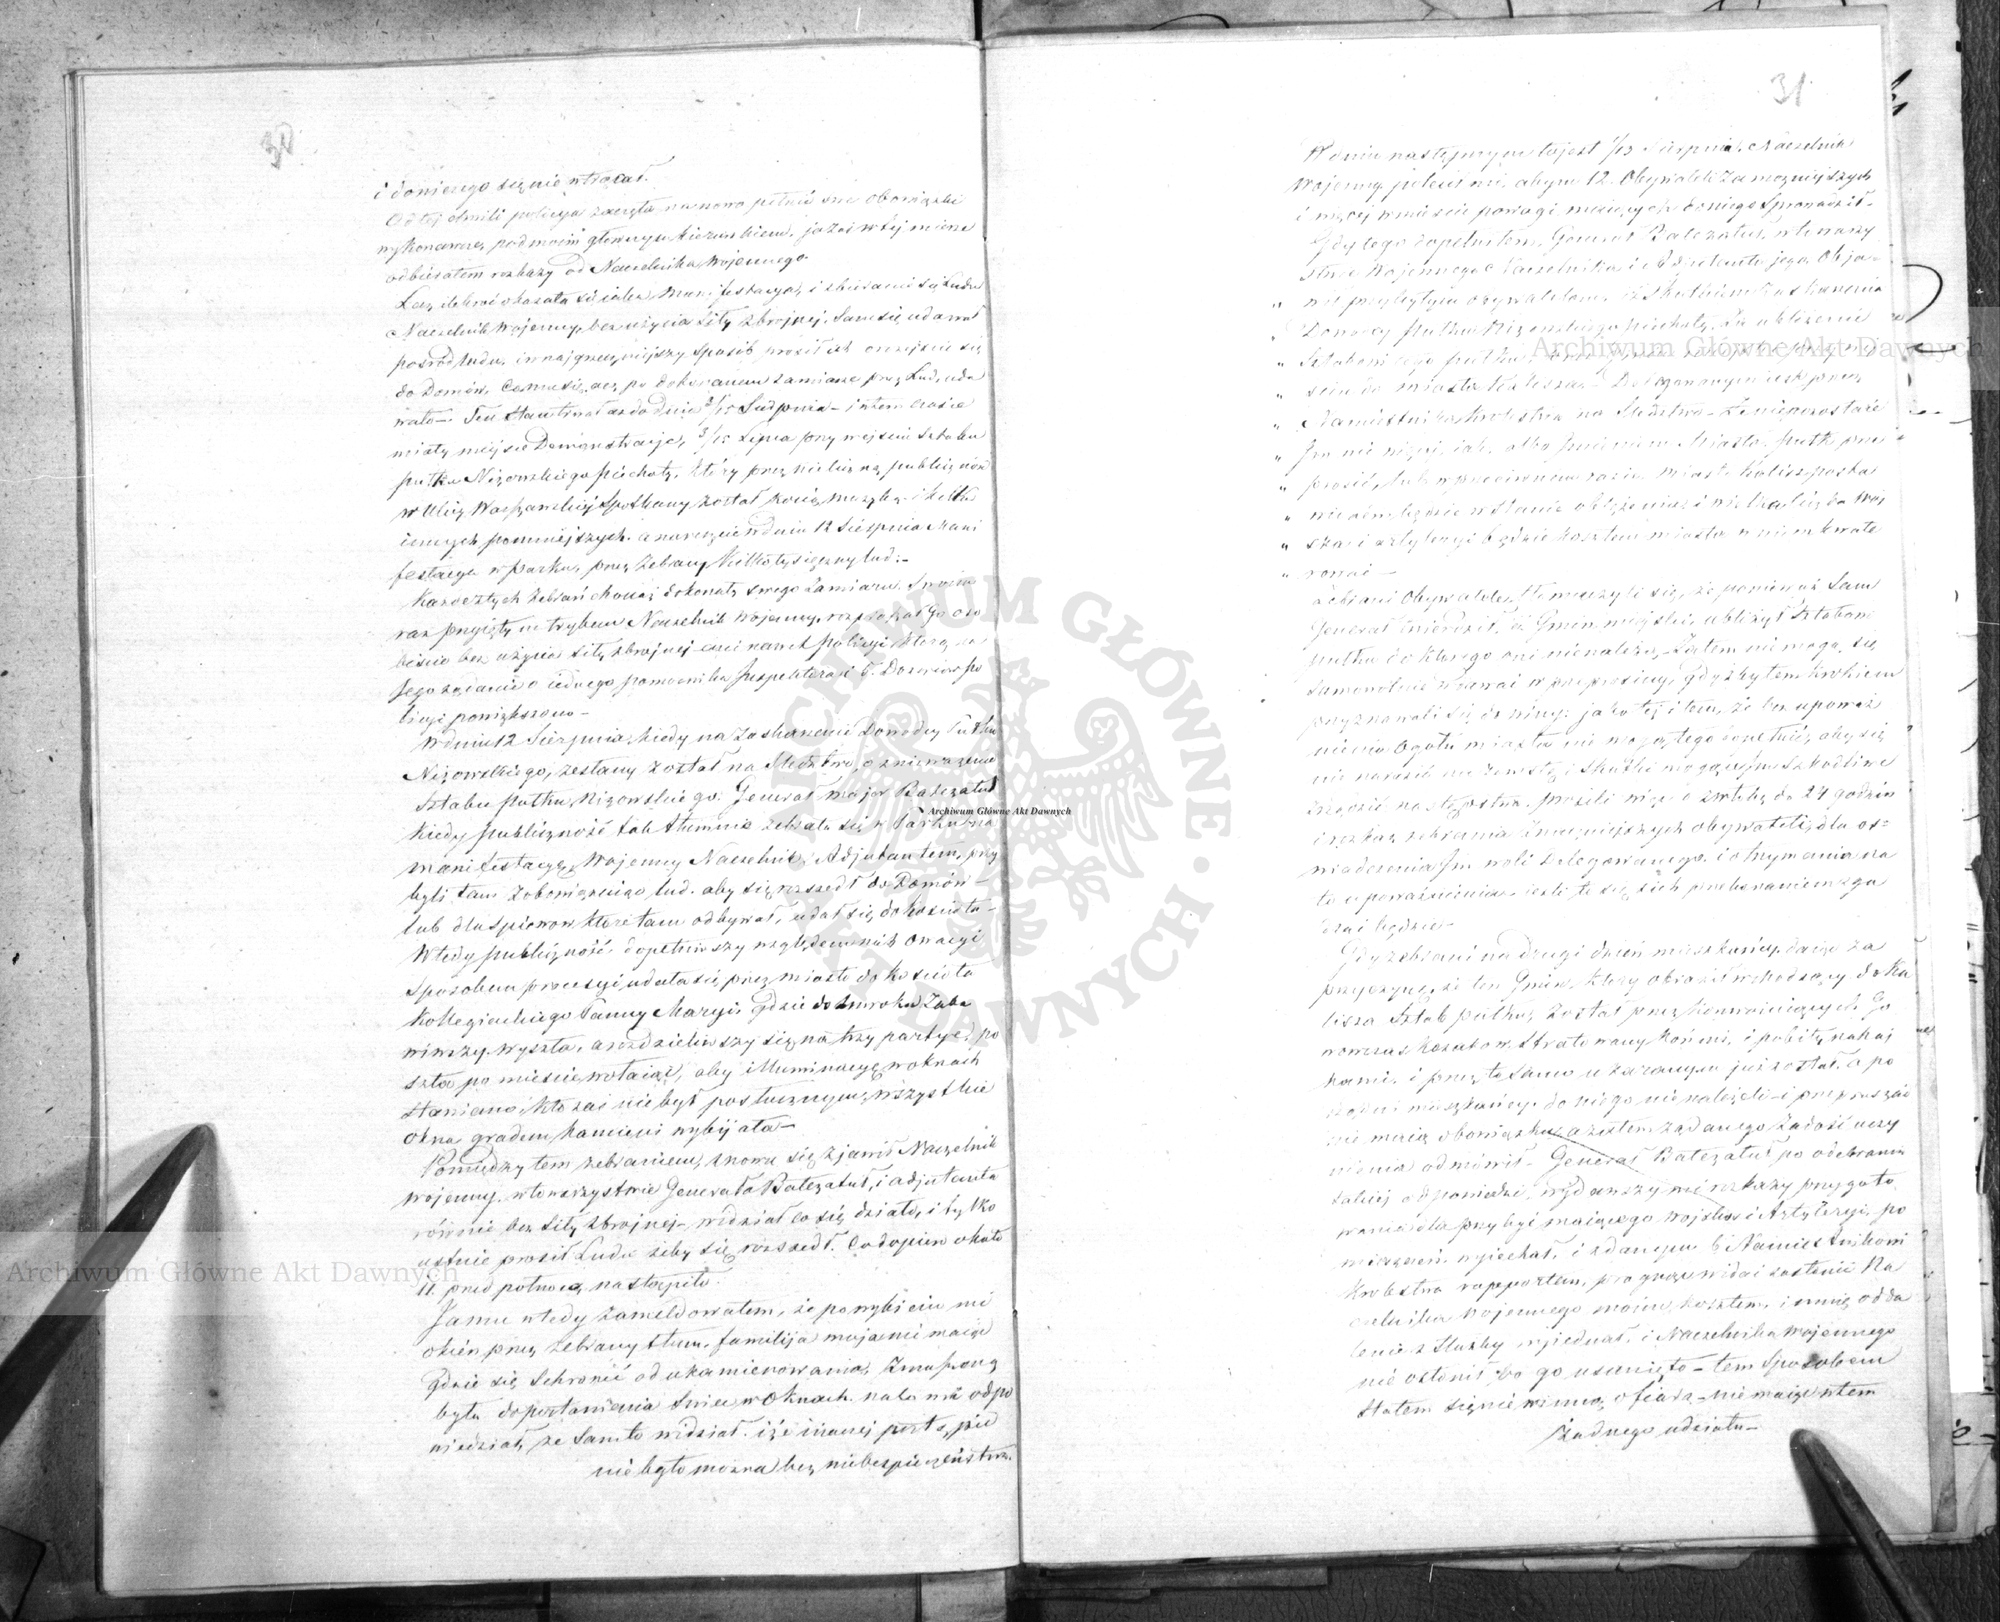 30
i doniczego się nie wtrącał.
Od tej chwili policya zaczęła na nowo pełnić swe obowiązki
wykonawcze, pod moim głównym kierunkiem, ja zaś w tej mierze
odbierałem rozkazy od Naczelnika Wojennego.
Manifestacya, i zbierani się Ludu
Naczelnik Wojenny, bez użycia siły zbrojnej, sam się udawał
pośród ludu, i w najgrzeczniejszy sposób prosił ich o rozejście się
do Domów, co mu się, acz po dokonaniu zamiaru przez Lud, uda
wało. Ten stan trwał aż do dnia 3/15 Sierpnia - i w tem czasie
miały miejsce Demonstracje, 3/15 Lipca przy wejściu Sztabu
pułku Nizowskiego piechoty, który przez nieliczną publiczność
w Ulicy Warszawskiej spotkany został kocią muzyką i kilka
innych pomniejszych, a nareszcie w dniu 12 Sierpnia Mani
festacya w parku, przez zebrany kilkotysięczny lud:-
Każde z tych zebrań chociaż dokonały swego zamiaru, swoim
raz przyjętym trybem Naczelnik Wojenny, rozpraszał go oso
biście bez użycia siły zbrojnej ani nawet policyi którą na
Jego żądanie o jednego pomocnika Inspektora i 6. Dozorców po
licyi powiększono -
W dniu 12 Sierpnia, kiedy na zaskarżenie Dowódcy Pułku
Nizowskiego, zesłany został na śledztwo, o znieważenie
Sztabu pułku, Nizowskiego, Generał major Balezatuł
kiedy publiczność tak tłumnie zebrała się w Parku na
manifestacyę, Wojenny Naczelnik, z Adjutantem, przy
byli tam zobowiązując lud, aby się rozszedł do Domów -
lub dla śpiewów które tam odbywał, udał się do kościoła -
Wtedy publiczność, dopełniwszy względem nich owacyi
sposobem procesyi udała się przez miasto do kościoła
Kollegiackiego Panny Maryi, gdzie do zmroku zaba
wiwszy wyszła, a rozdzieliwszy się na trzy partye, po
szła po mieście wołając, aby illuminacyę w oknach
stawiano, kto zaś nie był posłusznym, wszystkie
okna gradem kamieni wybijała -
Pomiędzy tem zebraniem, znowu się zjawił Naczelnik
Wojenny, w towarzystwie Generała Balezatuł, i adjutanta
równie bez siły zbrojnej - widział co się działo, i tylko
ustnie prosił Ludu żeby się rozszedł. Co dopiero około
11. przed północą nastąpiło.
Ja mu wtedy zameldowałem, że po wybiciu mi
okien przez zebrany tłum, familija moja nie mając
gdzie się schronić od ukamienowania, zmuszoną
była do postawienia świec w oknach. na to mi odpo
wiedział, że sam to widział, i że inaczej postąpić
nie było można bez niebezpieczeństwa.
31
W dniu następnym to jest 1/13 Sierpnia, Naczelnik
Wojenny polecił mi, abym 12. Obywateli zamożniejszych
i więcej w mieście powagi mających do niego sprowadził -
Gdy tego dopełniłem, Generał Balezatuł, w towarzy
stwie Wojennego Naczelnika i Adjutanta jego Obja-
wił przybyłym obywatelom, iż skutkiem zaskarżenia
Dowódcy Pułku Nizowskiego piechoty, za ubliżenie
Sztabowi tego pułku
ściu do miasta Kalisza - Delegowanym jest przez
Namiestnika Królestwa na śledztwo - że nie pozostaje
Im nic więcej, jak, albo Imieniem Miasta, pułk prze
prosić, lub w przeciwnym razie miasto Kalisz posta
wionem będzie w stanie oblężenia, i w
ska i artyleryi będzie kosztem miasta w nim kwate
rować -
Zebrani Obywatele, tłómaczyli się, że ponieważ Sam
Generał twierdził, iż Gmin miejski, ubliżył Sztabowi
pułku do którego oni nie należą, - Zatem nie mogą się
samowolnie wdawać w przeprosiny, gdyż by tem krokiem
przyznawali się do winy: jako też i tem, że bez upoważ
nienia Ogółu miasta nie mogą tego dopełnić, aby się
nie narazić na zemstę i skutki mogące szkodliwe
nastąpić - prosili więc o zwłokę do 24 godzin
i rozkaz zebrania znaczniejszych obywateli, dla oś-
wiadczenia Im woli delegowanego, i otrzymania na
to upoważnienia - jeśli to się z ich przekonaniem zga
dzać będzie -
Gdy zebrani na drugi dzień mieszkańcy, dając za
przyczynę, że ten Gmin, który obraził wchodzący do Ka
lisza Sztab pułku, został przez konwojujących Go
wówczas kozaków stratowany końmi, i pobity nahaj
kami, i przez to samo ukaranym już został, a po
rządni mieszkańcy, do niego nie należeli - i przepraszać
nie mają obowiązku, a zatem żądanego zadość uczy
nienia odmówili - Generał Balezatuł po odebraniu
takiej odpowiedzi, wydawszy mi rozkazy przygoto
wania dla przybyć mającego wojska i Artylleryi, po
mieszczeń, wyjechał, i zdanym b. Namiestnikowi
Królestwa rapportem,
Wojennego moim kosztem, i mnie odda
lenie z Służby wyjednał, i Naczelnika Wojennego
nie osłonił bo go usunięto - tem sposobem
stałem się niewinną ofiarą - nie mając w tem
żadnego udziału -
Archiwum Główne Akt Dawnych
Archiwum Główne Akt Dawnych
Archiwum Główne Akt Dawnych
ARCHIWUM GŁÓWNE AKT DAWNYCH